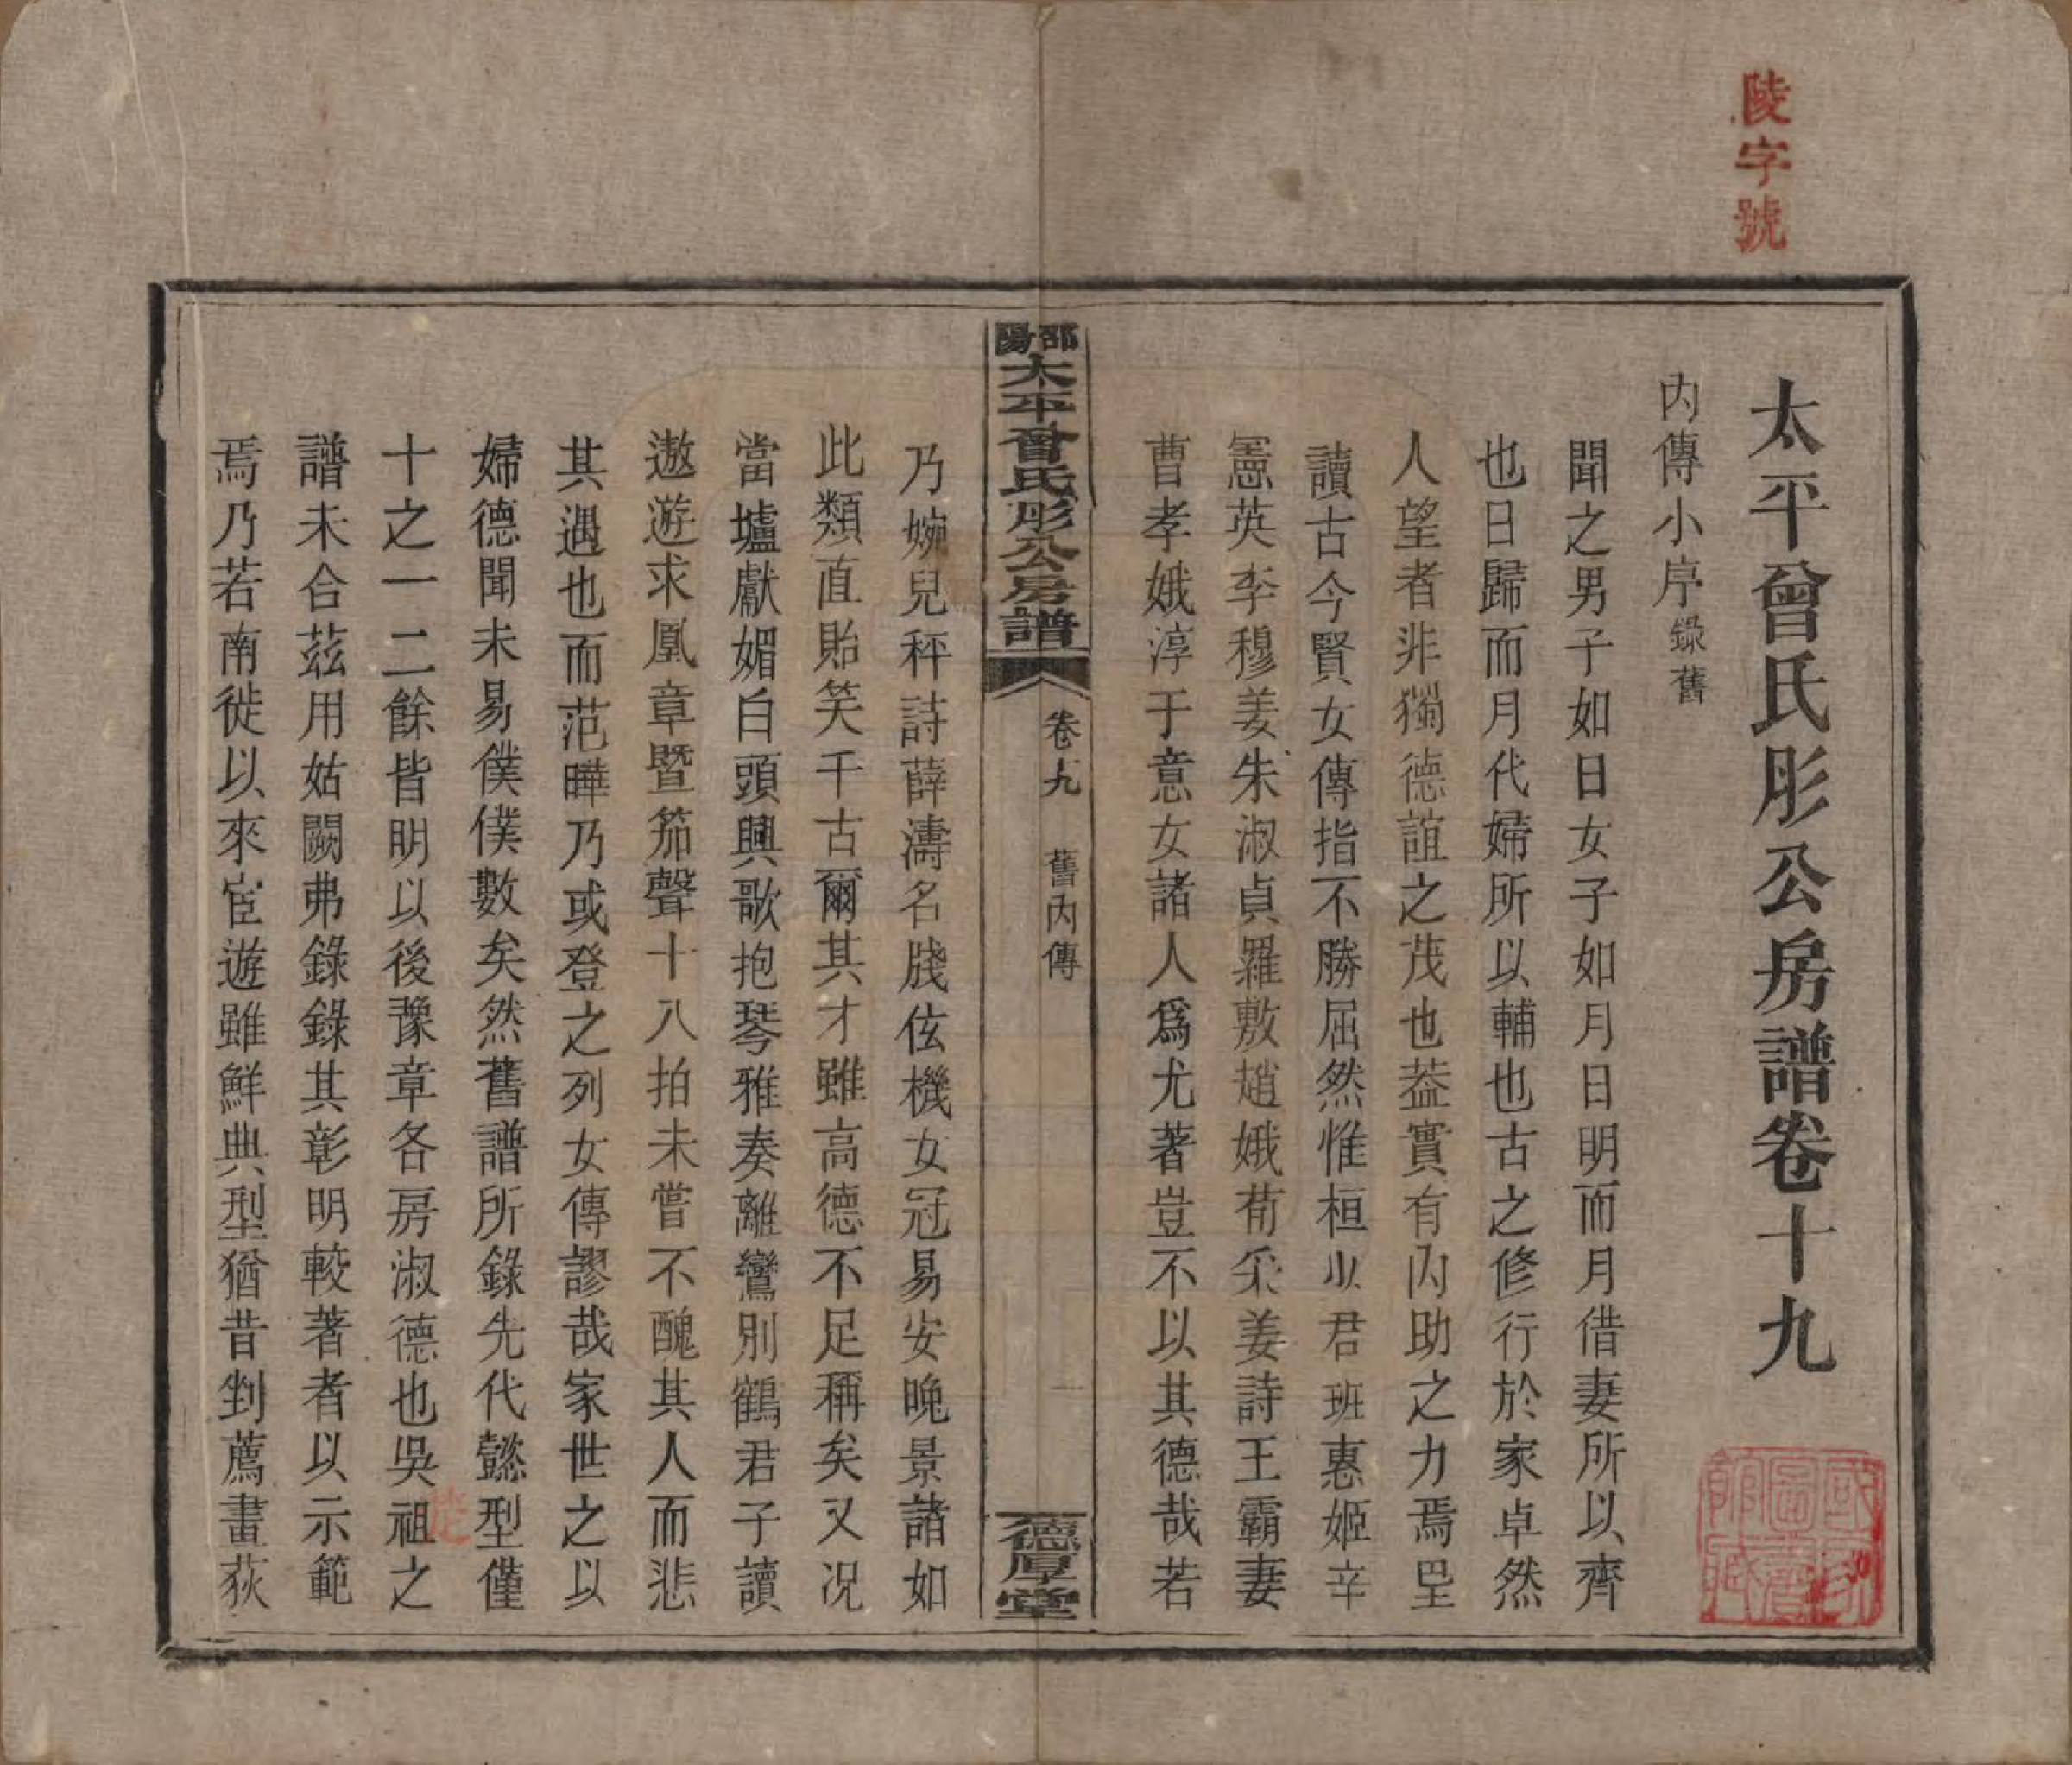 陵字號
太平曾氏彤公房譜卷十九
內傳小序錄舊
聞之男子如日女子如月日明而月借妻所以齊
也日歸而月代婦所以輔也古之修行於家卓然
人望者非獨德誼之茂也葢實有內助之力焉塱
讀古今賢女傳指不勝屈然惟桓少君班惠姬辛
憲英李穆姜朱淑貞羅敷趙娥荀采姜詩王霸妻
曹孝娥淳于意女諸人爲尤著豈不以其德哉若
邵陽太平曾氏彤公房譜
卷十九 舊內傳
一
德厚堂
乃婉兒秤詩薛濤名牋伭機女冠易安晚景諸如
此類直貽笑千古爾其才雖高德不足稱矣又況
當壚獻媚白頭興歌抱琴雅奏離鸞別鶴君子讀
遨遊求凰章曁笳聲十八拍未嘗不醜其人而悲
其遇也而范曄乃或登之列女傳謬哉家世之以
婦德聞未易僕僕數矣然舊譜所錄先代懿型僅
十之一二餘皆明以後豫章各房淑德也吳祖之
譜未合茲用姑闕弗錄錄其彰明較著者以示範
焉乃若南徙以來宦遊雖鮮典型猶昔剉薦畫荻